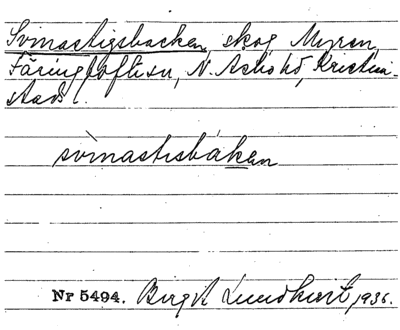 Svinastigsbacken, skog, Myren,
Färingtofta sn, N. Åsbo hd, Kristian-
stads l.
svìnastisbáken
Nr 5494. Birgit Lundkvist, 1936.